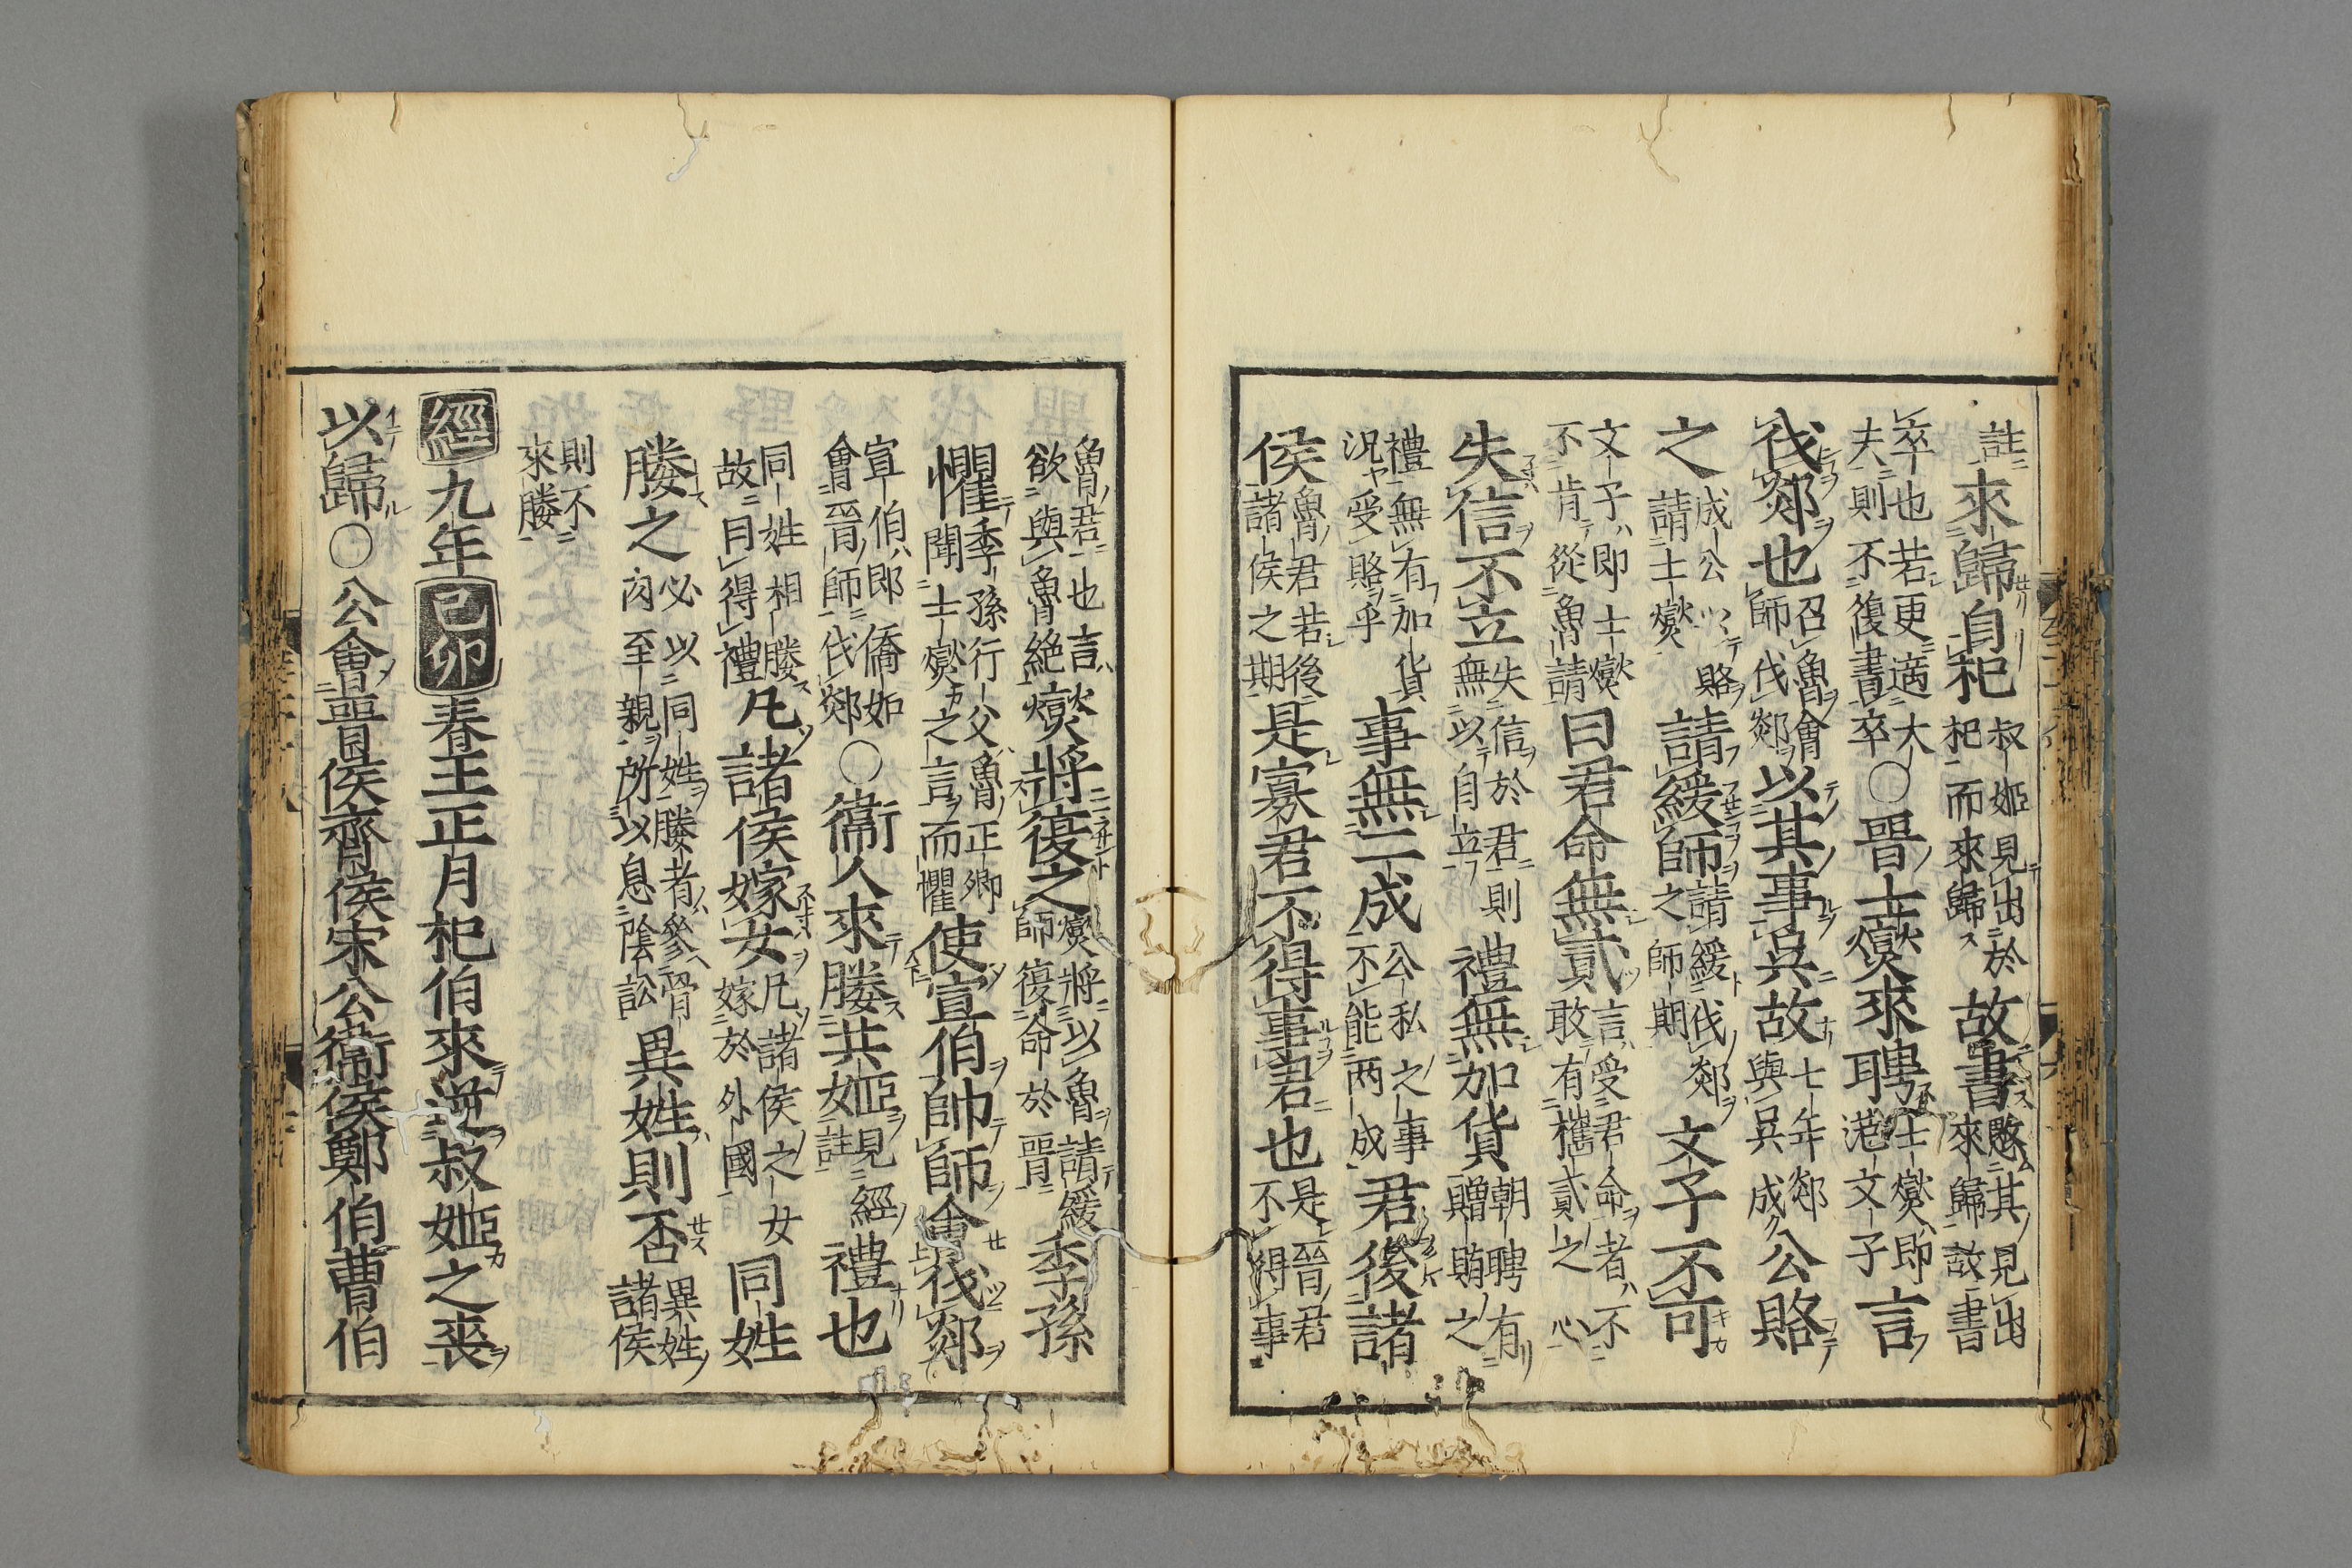 註來歸自杞叔姬見出於杞而來歸故書愍其見出來歸故書
卒也若更適大夫則不復書卒○晉士燮來聘士燮即范文子言
伐郯也召魯會師伐郯以其事吳故七年郯與吳成公賂
之成公以賂請士燮請緩師請緩伐郯之師期文子不可
文子即士燮不肯從魯請曰君命無貳言受君命者不敢有攜貳之心
失信不立失信於君則無以自立禮無加貨朝聘有贈賄之
禮無有加貨況受賂乎事無二成公私之事不能两成君後諸
侯魯君若後諸侯之期是寡君不得事君也是晉君不得事
魯君也言欲與魯絶燮將復之燮將以魯請緩師復命於晉季孫
懼季孫行父魯正卿聞士燮之言而懼使宣伯帥師會伐郯
宣伯即僑如會晉師伐郯○衞人來媵共姬見經註禮也
同姓相媵故曰得禮凡諸侯嫁女凡諸侯之女嫁於外國同姓
媵之必以同姓媵者參骨肉至親所以息陰訟異姓則否異姓諸侯
則不來媵
經九年己卯春王正月杞伯來逆叔姬之喪
以歸○公會晉侯齊侯宋公衞侯鄭伯曹伯